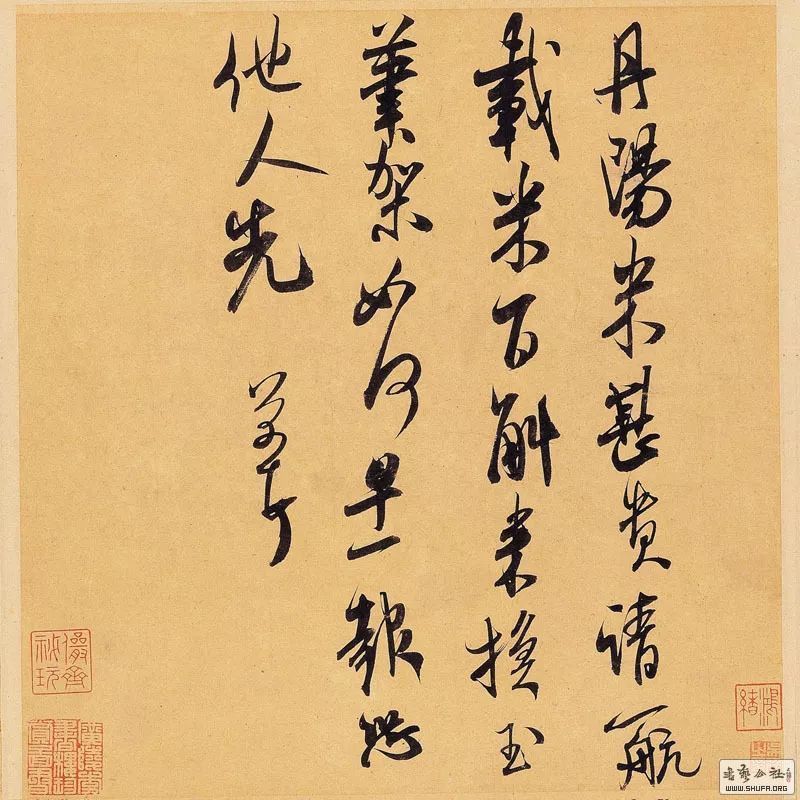 丹陽米甚貴請一航
載米百斛来換玉
筆架如何早一報恐
他人先
芾頓首
鴻緒
儼齋秘玩
書藝公社
WWW.SHUFA.ORG